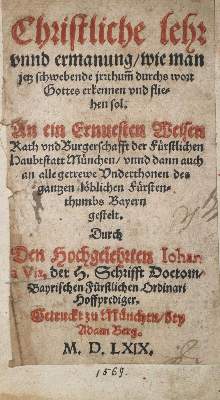 Christliche lehr
vnnd ermanung / wie man
jetz schwebende jrithum̃ durchs wort
Gottes erkennen vnd flie-
hen sol.
An ein Ernuesten Weisen
Rath vnd Burgerschafft der Fürstlichen
Haubtstatt München / vnnd dann auch
an alle getrewe Vnderthonen des
gantzen löblichen Fürsten-
thumbs Bayern
gestelt.
Durch
Den Hochgelehrten Iohan.
à Via, der H. Schrifft Doctorn /
Bayrischen Fürstlichen Ordinari
Hoffprediger.
Getruckt zu München / bey
Adam Berg.
M. D. LXIX.
1569.